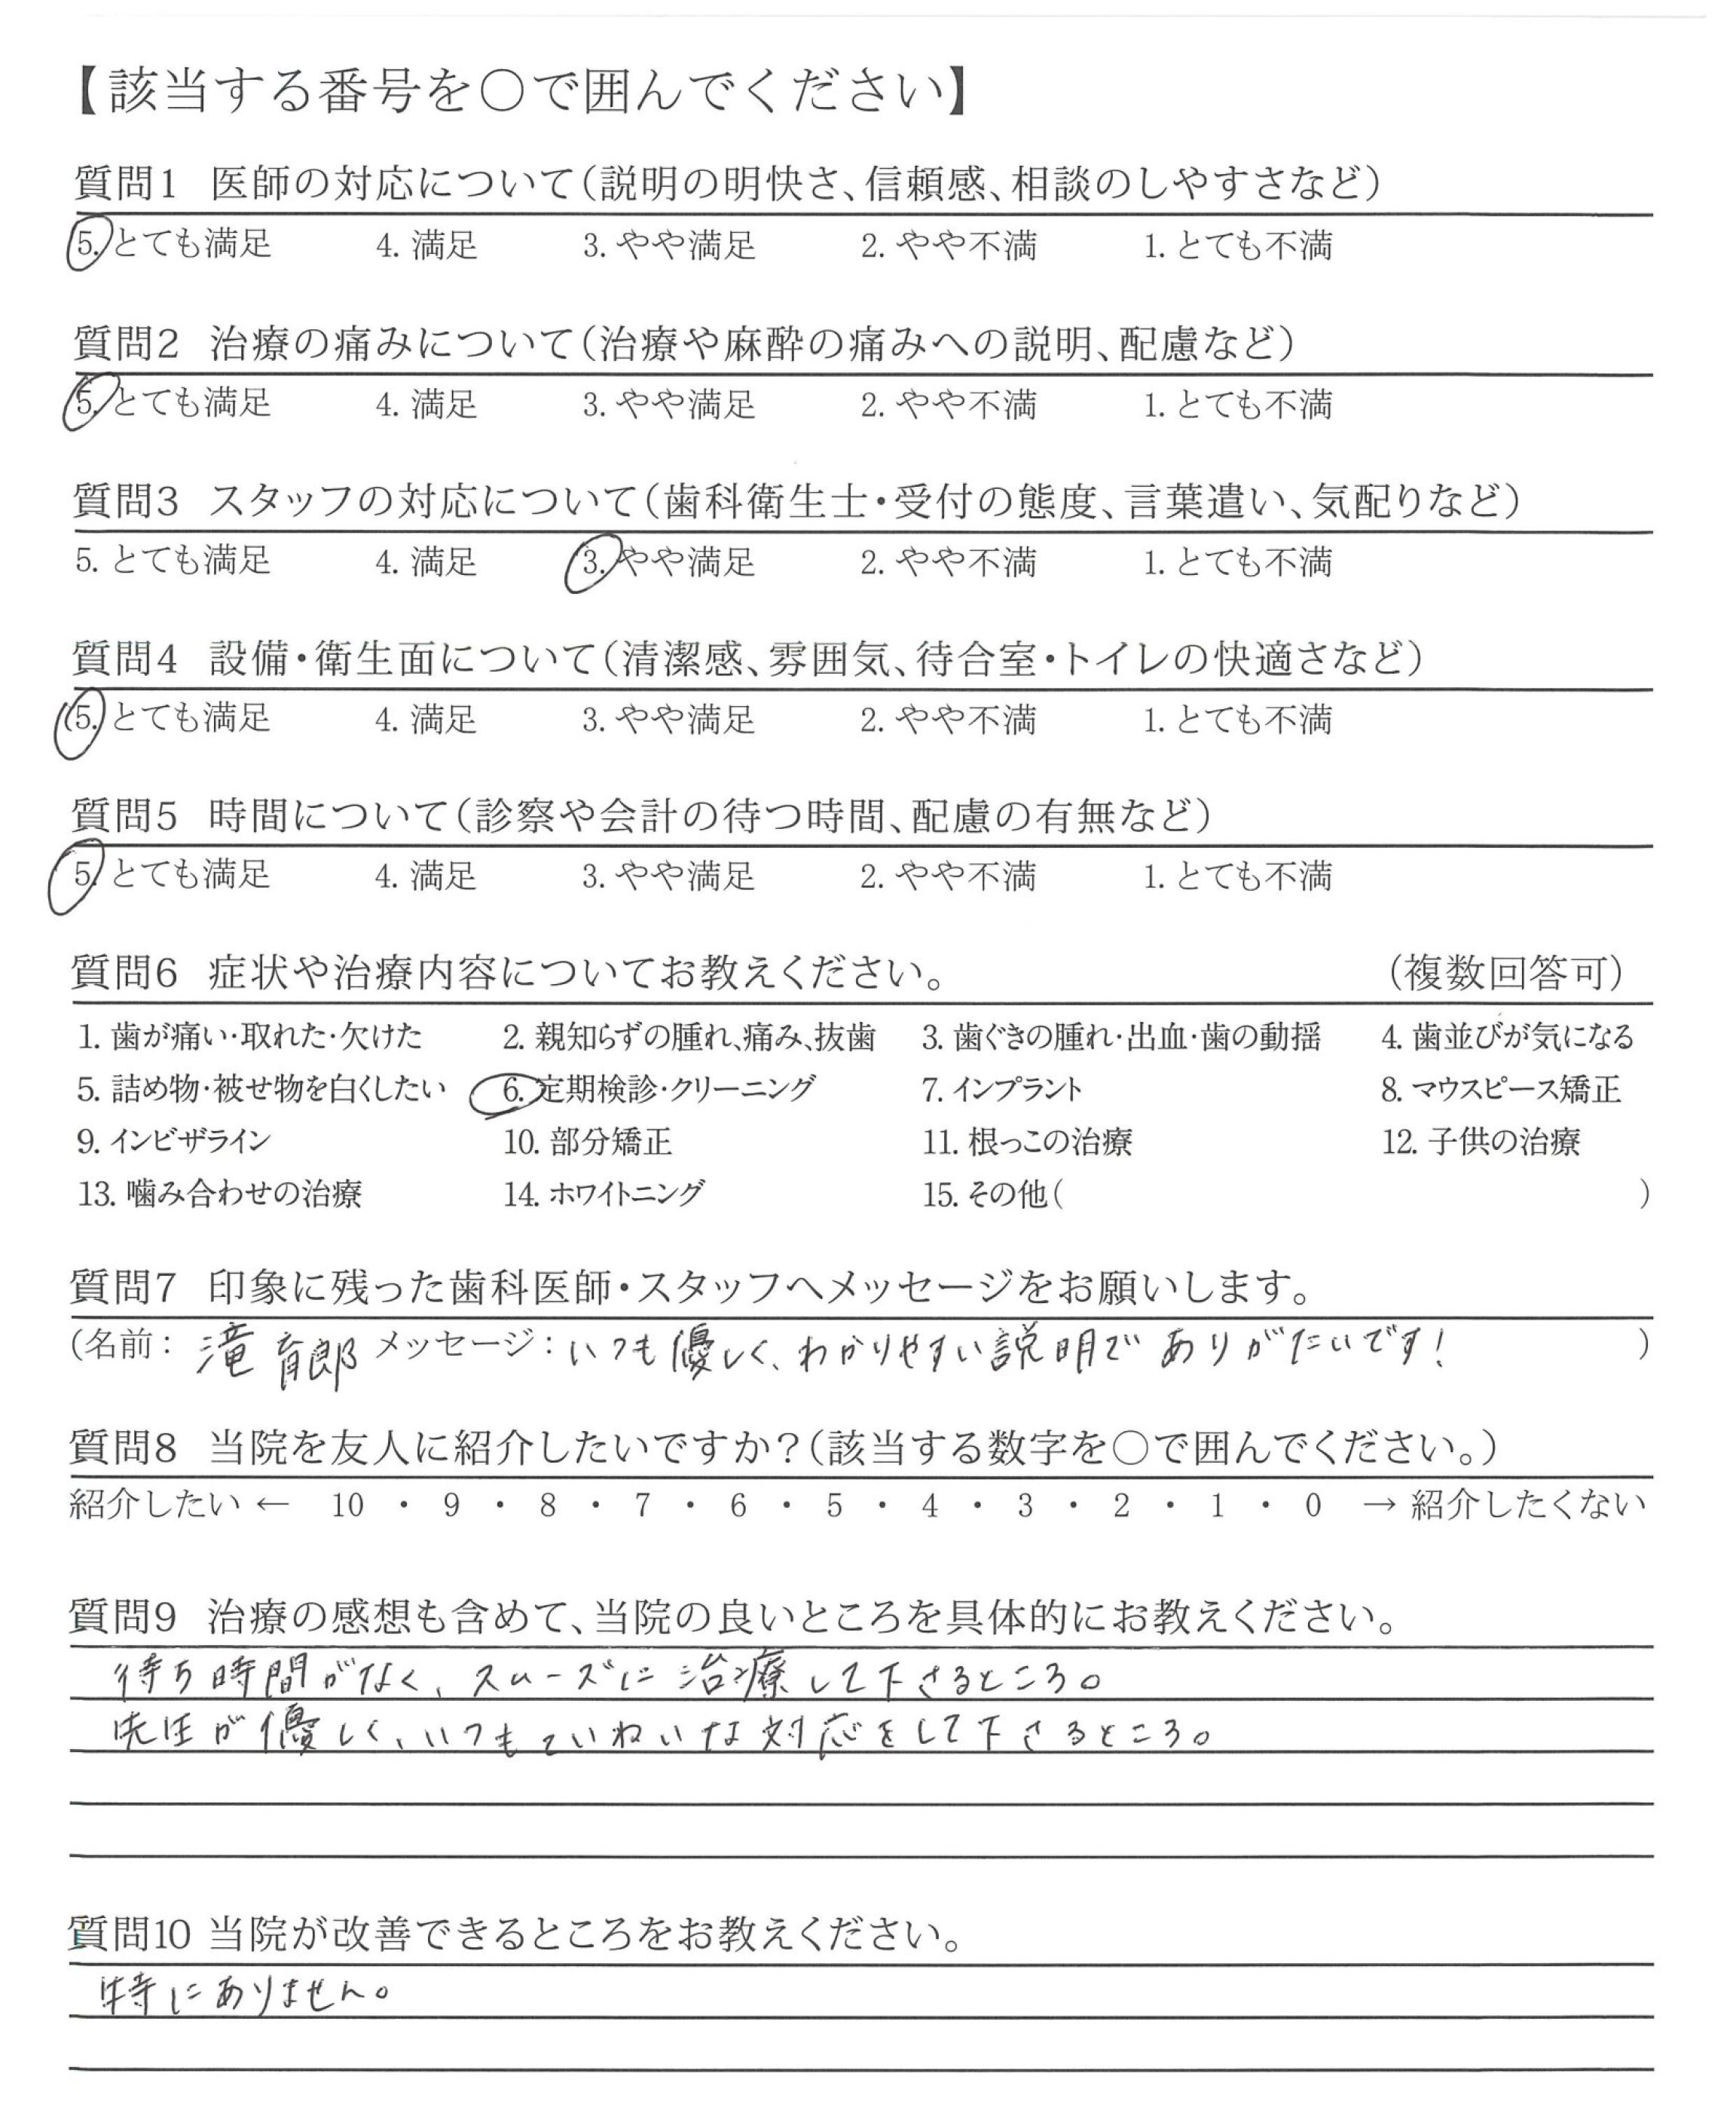 【該当する番号を○で囲んでください】
質問1 医師の対応について(説明の明快さ、信頼感、相談のしやすさなど)
5. とても満足 4. 満足 3. やや満足 2. やや不満 1. とても不満
質問2 治療の痛みについて(治療や麻酔の痛みへの説明、配慮など)
5. とても満足 4. 満足 3. やや満足 2. やや不満 1. とても不満
質問3 スタッフの対応について(歯科衛生士・受付の態度、言葉遣い、気配りなど)
5. とても満足 4. 満足 3. やや満足 2. やや不満 1. とても不満
質問4 設備・衛生面について(清潔感、雰囲気、待合室・トイレの快適さなど)
5. とても満足 4. 満足 3. やや満足 2. やや不満 1. とても不満
質問5 時間について(診察や会計の待つ時間、配慮の有無など)
5. とても満足 4. 満足 3. やや満足 2. やや不満 1. とても不満
質問6 症状や治療内容についてお教えください。 (複数回答可)
1. 歯が痛い・取れた・欠けた 2. 親知らずの腫れ、痛み、抜歯 3. 歯ぐきの腫れ・出血・歯の動揺 4. 歯並びが気になる
5. 詰め物・被せ物を白くしたい 6. 定期検診・クリーニング 7. インプラント 8. マウスピース矯正
9. インビザライン 10. 部分矯正 11. 根っこの治療 12. 子供の治療
13. 噛み合わせの治療 14. ホワイトニング 15. その他( )
質問7 印象に残った歯科医師・スタッフへメッセージをお願いします。
(名前: 滝 育郎 メッセージ: いつも優しく、わかりやすい説明でありがたいです! )
質問8 当院を友人に紹介したいですか?(該当する数字を○で囲んでください。)
紹介したい ← 10 ・ 9 ・ 8 ・ 7 ・ 6 ・ 5 ・ 4 ・ 3 ・ 2 ・ 1 ・ 0 → 紹介したくない
質問9 治療の感想も含めて、当院の良いところを具体的にお教えください。
待ち時間がなく、スムーズに治療して下さるところ。
先生が優しく、いつもていねいな対応をして下さるところ。
質問10 当院が改善できるところをお教えください。
特にありません。